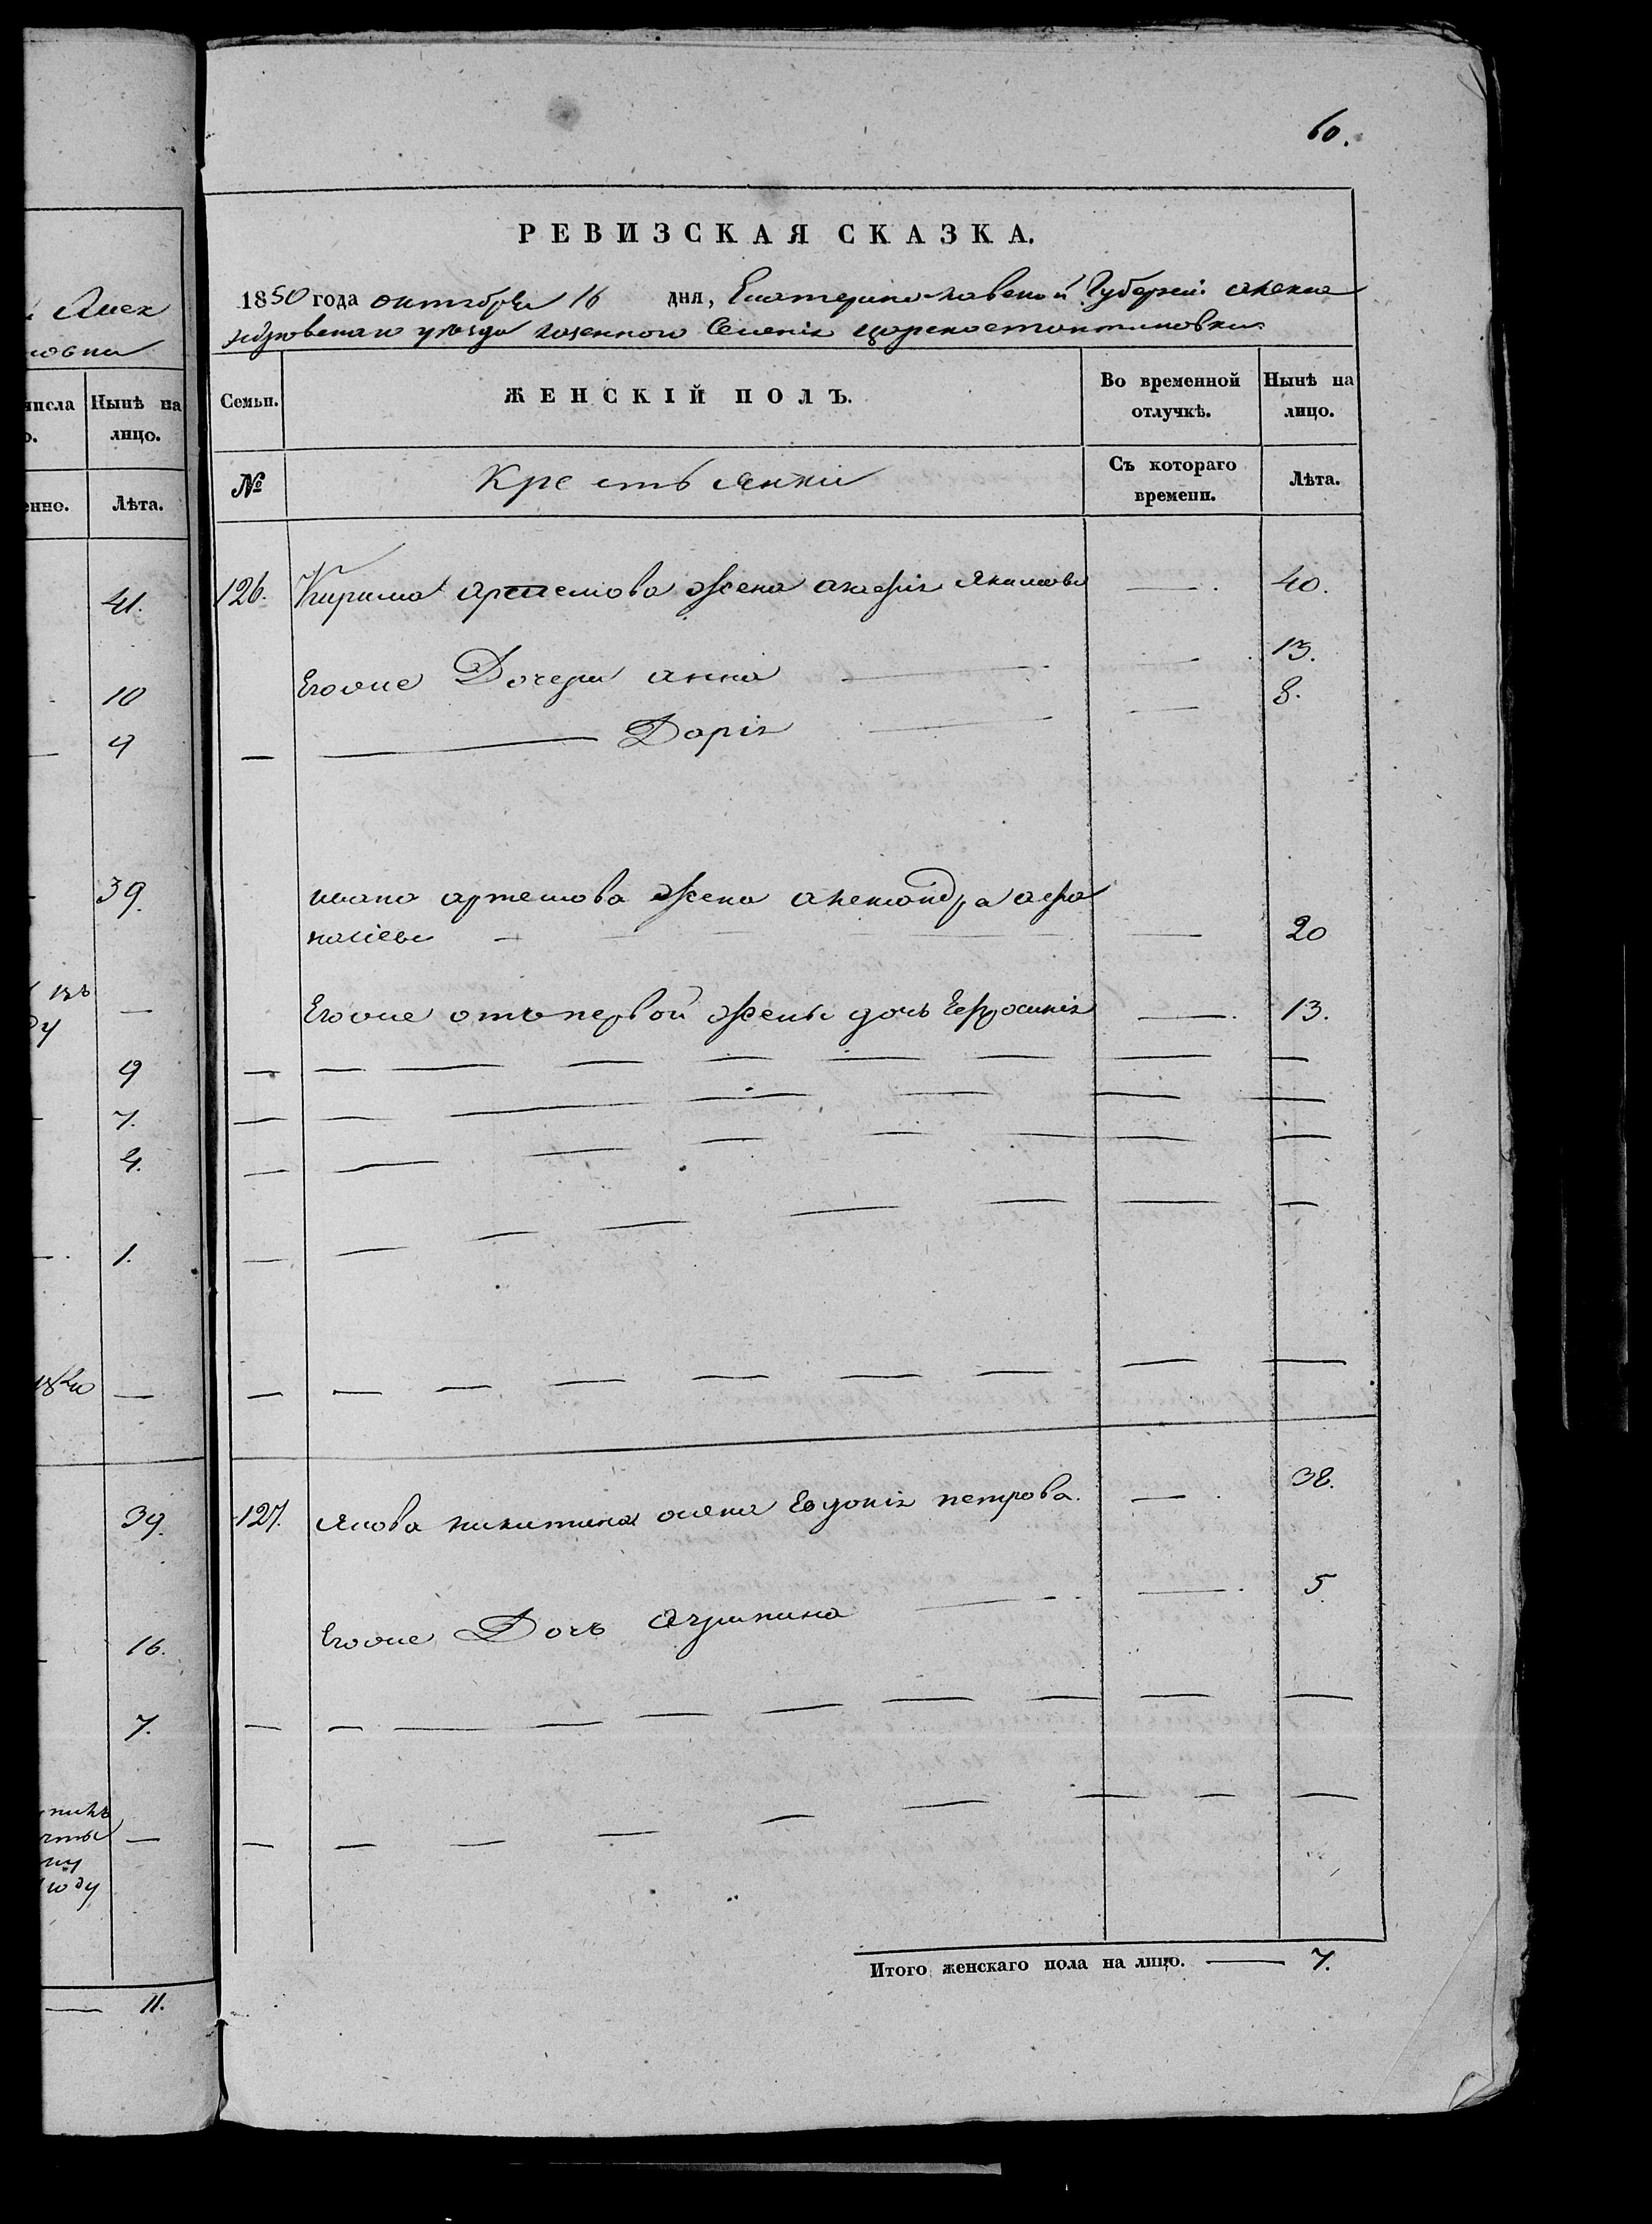 60.
РЕВИЗСКАЯ СКАЗКА.
1850 года октября 16 дня, Екатеринославской Губернiи Алекса
ндровскаго уезда казенного Селенiя Царекостонтиновки
Семьи. ЖЕНСКІЙ ПОЛЪ. Во временной отлучкѣ. Нынѣ на лицо.
№ Крестьянки Съ котораго времени. Лѣта.
126. Кирила Артемова жена Якимова 40.
Еговые Дочери Анна 13.
Дарiя 8.
Ивана Артемова жена Александра Афа
насiева 20
Еговые отъ первой жены дочь Ефросинiя 13.
127. Якова Никитина жена Евдокiя Петрова. 38.
Еговые Дочь Агрипина 5
Итого женскаго пола на лицо. 7.
Алек
числа Нынѣ на
лицо.
Лѣта.
41.
10
4
39.
9
7.
4.
1.
39.
16.
7.
году
11.